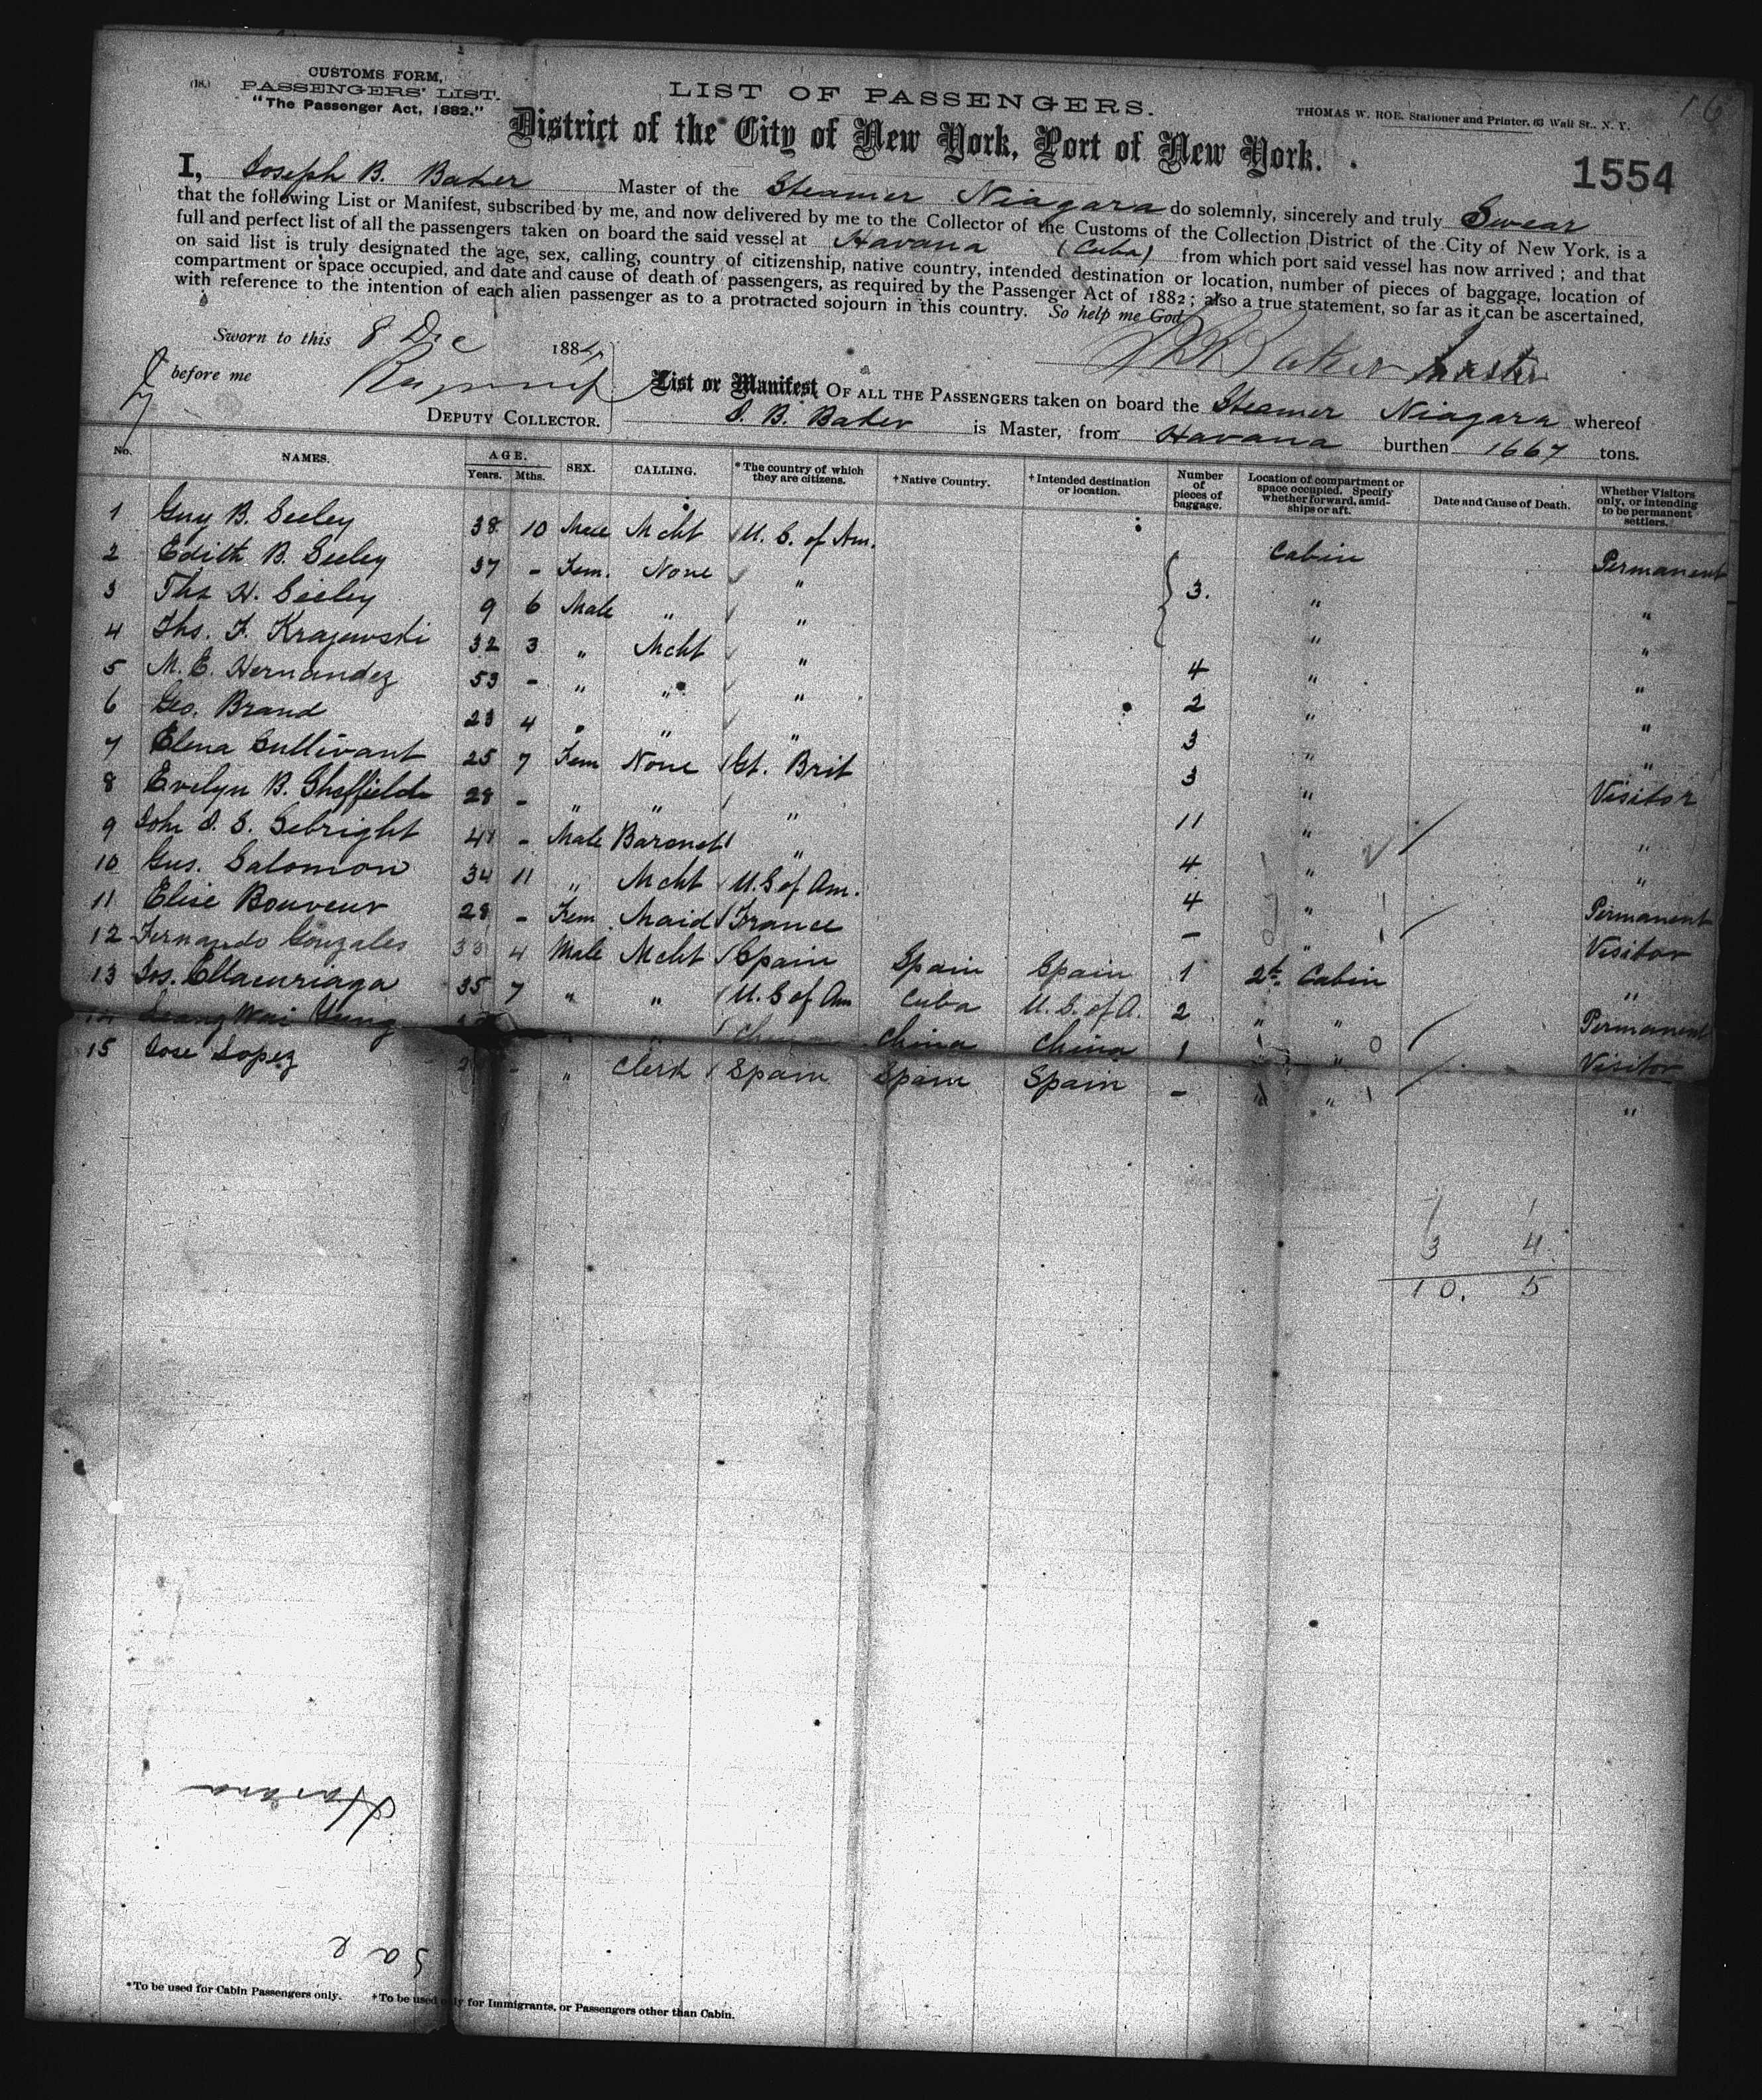 (18.) CUSTOMS FORM,
PASSENGERS' LIST.
"The Passenger Act, 1882."
LIST OF PASSENGERS.
THOMAS W. ROE, Stationer and Printer, 63 Wall St., N. Y.
16
District of the City of New York, Port of New York.
1554
I, Joseph B. Baker Master of the Steamer Niagara do solemnly, sincerely and truly Swear
that the following List or Manifest, subscribed by me, and now delivered by me to the Collector of the Customs of the Collection District of the City of New York, is a
full and perfect list of all the passengers taken on board the said vessel at Havana (Cuba) from which port said vessel has now arrived; and that
on said list is truly designated the age, sex, calling, country of citizenship, native country, intended destination or location, number of pieces of baggage, location of
compartment or space occupied, and date and cause of death of passengers, as required by the Passenger Act of 1882; also a true statement, so far as it can be ascertained,
with reference to the intention of each alien passenger as to a protracted sojourn in this country. So help me God.
Sworn to this 8 Dec 188
Baker Master
before me
DEPUTY COLLECTOR.
List or Manifest OF ALL THE PASSENGERS taken on board the Steamer Niagara whereof
J. B. Baker is Master, from Havana burthen 1667 tons.
No. NAMES. AGE. Years. Mths. SEX. CALLING. *The country of which they are citizens. †Native Country. †Intended destination or location. Number of pieces of baggage. Location of compartment or space occupied. Specify whether forward, amidships or aft. Date and Cause of Death. Whether Visitors only, or intending to be permanent settlers.
1 Guy B. Seeley 38 10 Male Mcht U. S. of Am. Cabin Permanent
2 Edith B. Seeley 37 - Fem. None " 3. " "
3 Ths H. Seeley 9 6 Male " " " "
4 Ths. F. Krajewski 32 3 " Mcht " 4 " "
5 M. E. Hernandez 53 - " " " 2 " "
6 Geo. Brand 23 4 " " " 3 " "
7 Elena Sullivant 25 7 Fem None Gt. Brit 3 " Visitor
8 Evelyn B. Sheffield 28 - " " " 11 " "
9 John S. Sebright 41 - Male Baronet " 4 " "
10 Gus. Salomon 34 11 " Mcht U.S of Am. 4 " Permanent
11 Elise Bouveur 28 - Fem. Maid France - " Visitor
12 Fernando Gonzales 33 4 Male Mcht Spain Spain Spain 1 2d. Cabin "
13 Jos. Ellacuriaga 35 7 " " U.S of Am Cuba U.S. of A. 2 " " Permanent
14 Wai Yung " China China China 1 " " Visitor
15 Jose Lopez - " Clerk Spain Spain Spain - " " "
7 1
3 4
10. 5
Havana
*To be used for Cabin Passengers only. †To be used only for Immigrants, or Passengers other than Cabin.